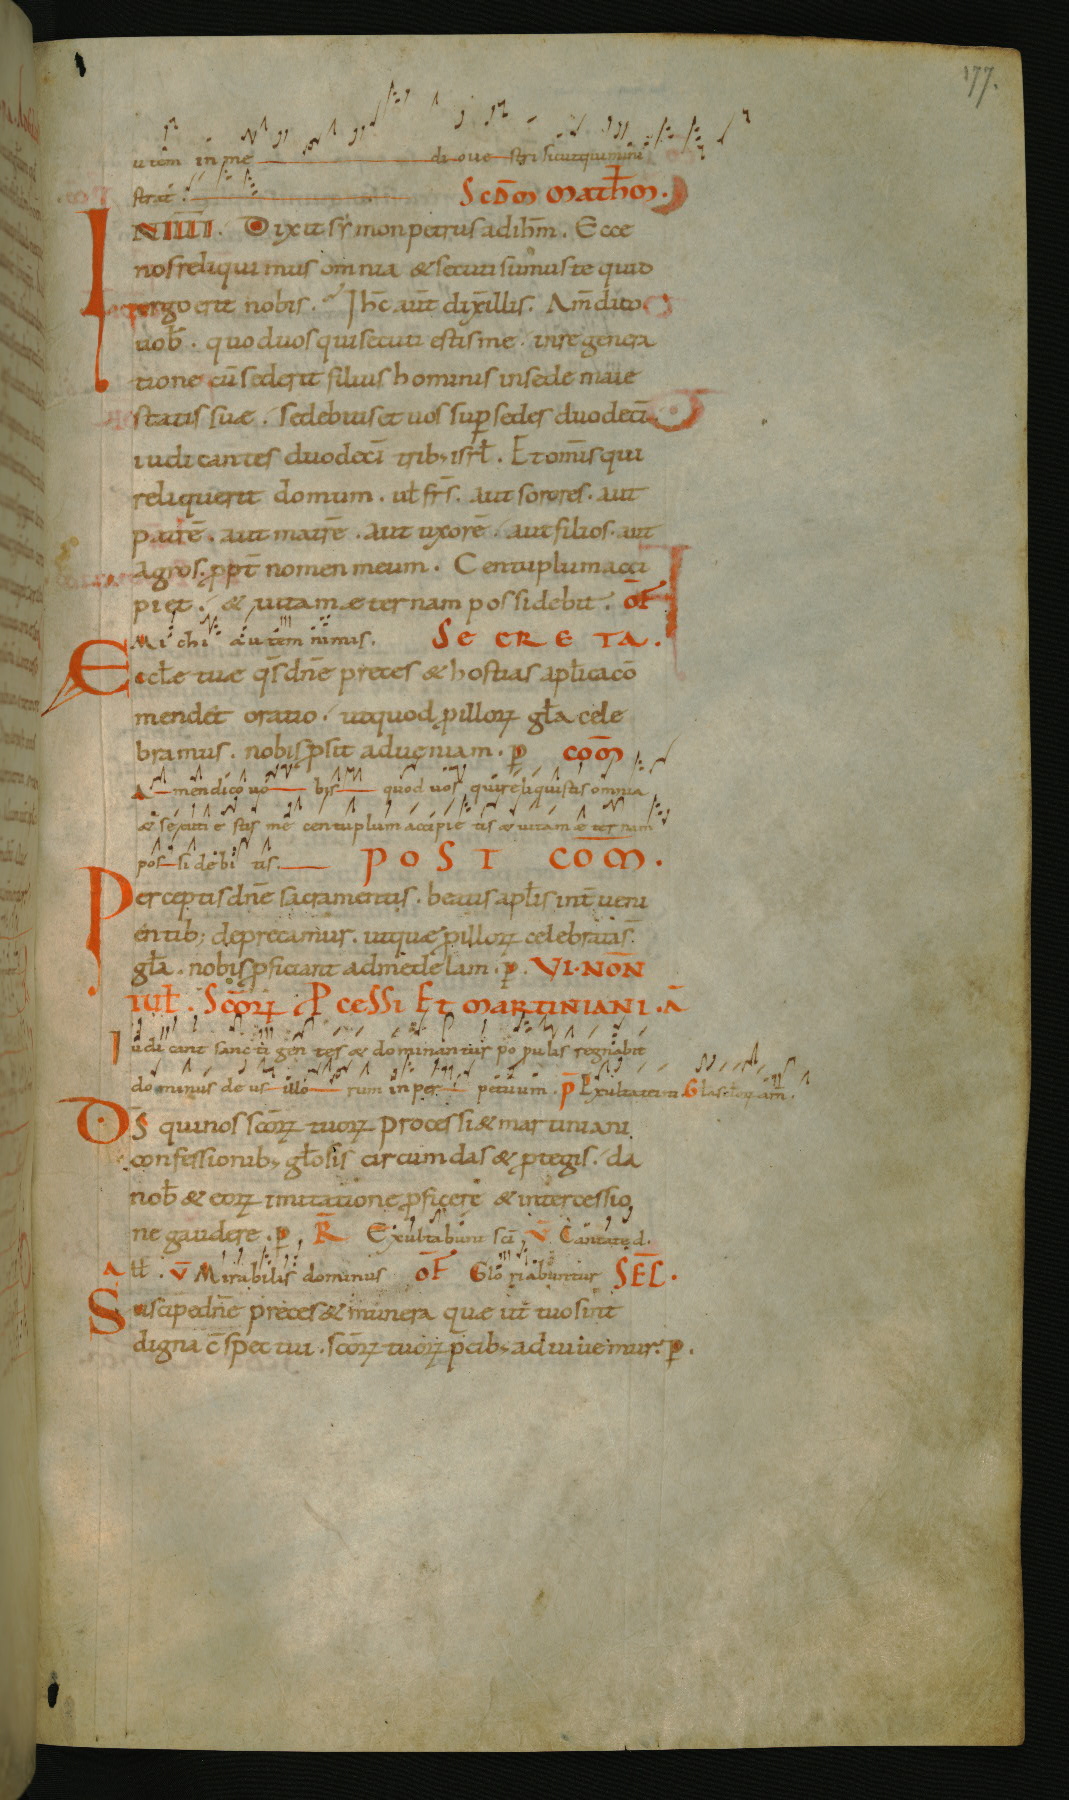 177.
utem in me di o ue stri sicut qui mini
strat. Scdm math̄m.
IN IIII. Dixit symon petrus ad ihm̄. Ecce
nos reliquimus omnia & secuti sumus te quid
ergo erit nobis. Ihc̄ aut̄ dix̄ illis. Am̄ dico
uob̄. quod uos qui secuti estis me. in regenera
tione cū sederit filius hominis in sede maie
statis suæ. sedebitis et uos sup sedes duodecī
iudicantes duodecī trib; isrł. Et omīs qui
reliquerit domum. uł frs̄. aut sorores. aut
patrē. aut matrē. aut uxorē. aut filios. aut
agros. ppt̄ nomen meum. Centuplum acci
piet. & uitam æternam possidebit. OF
Mi chi autem nimis. SE CR E TA.
Eccłæ tuæ qs̄ dnē preces & hostias apłica cō
mendet oratio. ut quod p illoꝝ gła cele
bramus. nobis psit ad ueniam. p COM̄
Amen dico uo bis quod uos qui reliquistis omnia
& secuti e stis me centuplum accipie tis & uitam æ ter nam
pos si debi tis. POST COM̄.
Perceptis dnē sacramentis. beatis apłis int̄ueni
entib; deprecamur. ut quæ p illoꝝ celebratā s̄
gła. nobis pficiant ad medelam. p. VI. NON̄
IUŁ. SCŌꝝ PCESSI ET MARTINIANI. Ā
Iudi cant sancti gen tes & dominantur po pulis regnabit
dominus de us illo rum in per petuum. P̄ Exultate iusti Glas eloq. am.
DS̄ qui nos scōꝝ tuoꝝ processi & martiniani
confessionib; głosis circumdas & ptegis. da
nob̄ & eoꝝ imitatione pficere & intercessio
ne gaudere. p. R̄ Exultabunt scī V̄ Cantate d.
Ałł. V̄ Mirabilis dominus OF̄ Glo riabuntur SEC̄.
Suscipe dnē preces & munera quæ ut tuo sint
digna c̄spectui. scōꝝ tuoꝝ pcib; adiuuemur. p.